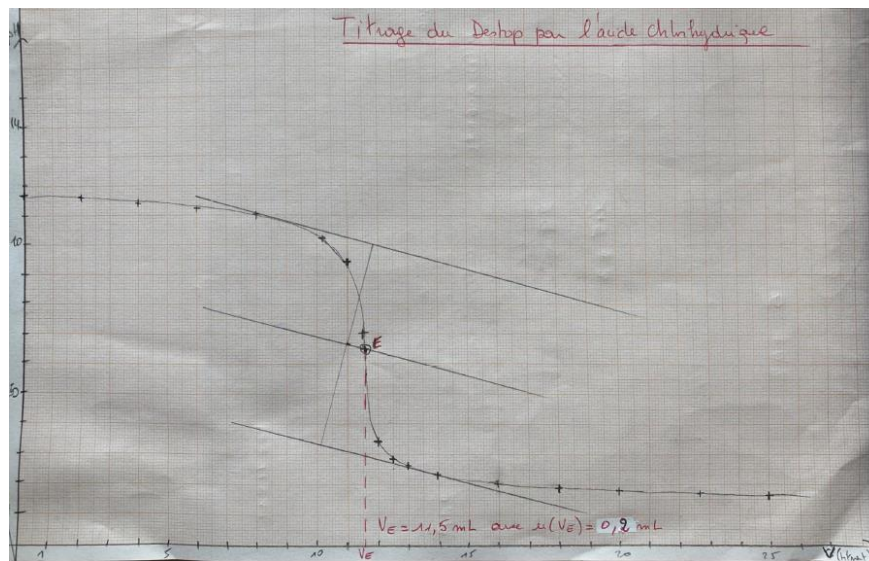 Titrage du Destop par l'acide chlorhydrique
pH
14
10
50
E
VE = 11,5 mL avec u(VE) = 0,2 mL
1
5
10
VE
15
20
25